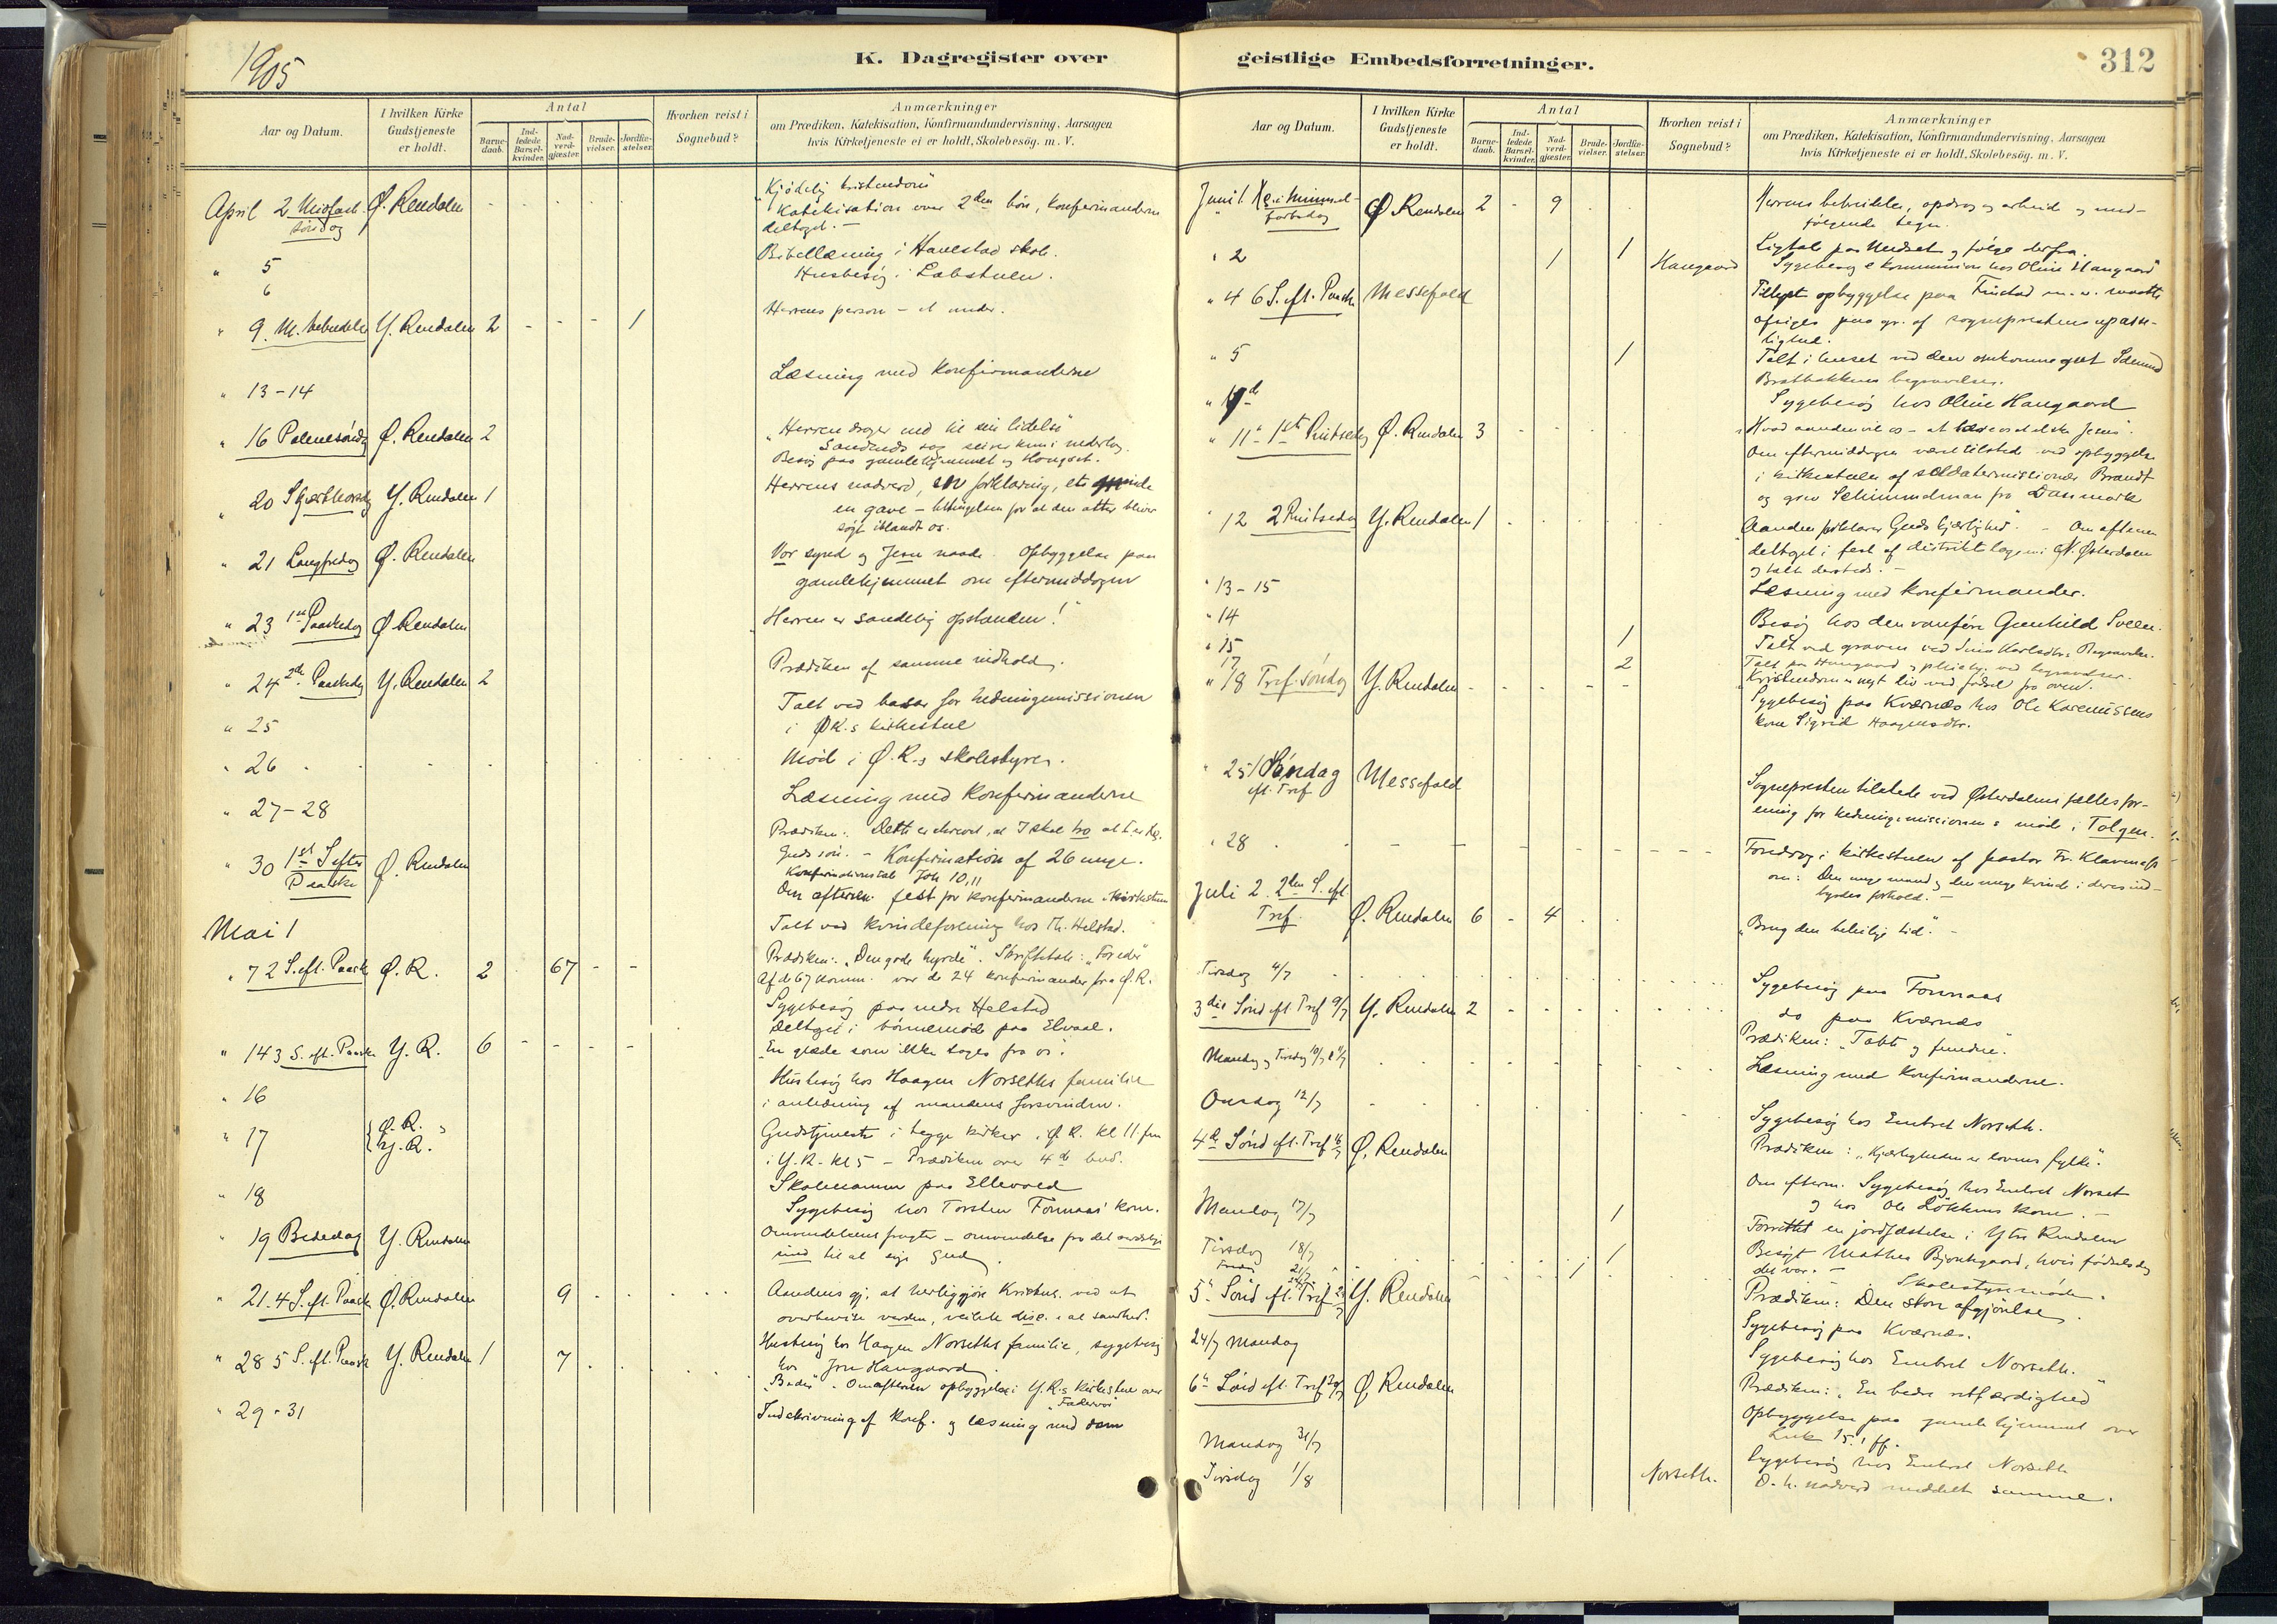 1905
K. Dagregister over
Aar og Datum.
I hvilken Kirke Gudstjeneste er holdt.
Antal
Barne-daab.
Ind-ledede Barsel-kvinder.
Nad-verd-gjæster.
Brude-vielser.
Jordfæ-stelser.
Hvorhen reist i Sognebud?
Anmærkninger
om Prædiken, Katekisation, Konfirmandundervisning, Aarsagen
hvis Kirketjeneste ei er holdt, Skolebesög. m. V.
April 2 Midfast söndag Ø. Rendalen
Katekisation over 2den bön, konfirmanderne
deltaget. —
" 5 Bibellæsning i Hanestad skole.
6 Husbesög i
" 9. M. bebudelse Y. Rendalen 2 - - - 1 Herrens person - et under.
" 13-14 Læsning med Konfirmanderne
" 16 Palmesöndag Ø. Rendalen 2 "Herren drager ned til sin lidelse"
Besög paa gamlehjemmet
" 20 Skjærthorsdag Y. Rendalen 1 Herrens nadverd,
en gave - betingelsen for at den atter bliver
søgt iblandt os.
" 21 Langfredag Ø. Rendalen Vor synd og Jesu naade. Opbyggelse paa
gamlehjemmet om eftermiddagen
" 23 1ste Paaskedag Ø Rendalen "Herren er sandelig opstanden!"
" 24 2den Paaskedag Y. Rendalen 2 Prædiken af samme indhold.
" 25 Talt ved basar for hedningemissionen
i Ø R.s kirkestue
" 26 Möde i Ø. R.s skolestyre.
" 27-28 Læsning med Konfirmanderne
" 30 1st S efter Paaske Ø. Rendalen Prædiken:
Guds sön. - Konfirmation af 26 unge.
Konfirmationstale Joh 10,11
Om aftenen fest for konfirmanderne i kirkestuen
Mai 1 Talt ved kvindeforening hos Th. Helstad.
" 7 2 S. eft. Paaske Ø. R. 2 67 - - Prædiken: "Den gode hyrde". Skriftetale:
Af de 67 komm. var de 24 konfirmander fra Ø. R.
Sygebesög paa nedre Helstad
Deltaget i börnemöde paa Elvaal.
" 14 3 S. eft. Paaske Y. R. 6 - - - - "En glæde som ikke tages fra os".
" 16 Husbesög hos Haagen Norseths familie
i anledning af mandens forsvinden.
" 17 Ø. R. Y. R. Gudstjeneste i begge kirker, i Ø R. kl 11 fm
i Y. R. kl 5 - Prædiken over 4de bud.
" 18 Skoleeksamen paa Ellevold
Sygebesög hos Torsten Fonnaas' kone.
" 19 Bededag Y. Rendalen Omvendelsens frugter - omvendelse fra det
sind til at søge Gud.
" 21. 4 S. eft. Paaske Ø. Rendalen 9 Aandens gj. at herliggjøre Kristus ved at
overbevise verden, veilede disc. i al sandhed.
" 28 5 S. eft. Paaske Y. Rendalen 1 7 Husbesög hos Haagen Norseths familie, sygebesög
hos Jon Haugaard
"Beder". Om aftenen opbyggelse i Y. R.s kirkestue over
"Fadervor"
" 29-31 Indskrivning af konf. og læsning med dem
geistlige Embedsforretninger.
312
Aar og Datum.
I hvilken Kirke Gudstjeneste er holdt.
Antal
Barne-daab.
Ind-ledede Barsel-kvinder.
Nad-verd-gjæster.
Brude-vielser.
Jordfæ-stelser.
Hvorhen reist i Sognebud?
Anmærkninger
om Prædiken, Katekisation, Konfirmandundervisning, Aarsagen
hvis Kirketjeneste ei er holdt, Skolebesög. m. V.
Juni 1. Kristi Himmelfartsdag Ø Rendalen 2 - 9 Herrens opdrag og arbeide og med-
følgende tegn.
" 2 1 1 Haugaard Ligtale paa Undset og følge derfra.
Sygebesøg & kommunion hos Oline Haugaard
" 4 6 S. eft. Paaske Messefald Tillyst opbyggelse paa Finstad m. v. maatte
afsiges paa gr. af sogneprestens upasse-
lighed.
" 5 1 Talt i huset ved den omkomne
begravelse.
Sygebesög hos Oline Haugaard
" 11te 1ste Pintsedag Ø. Rendalen 3 "Hvad aanden vil os - at lære os at elske Jesus".
Om eftermiddagen været tilstede ved opbyggelse
i kirkestuen af soldatermissionær Brandt
og grev Schimmelman fra Danmark
" 12 2 Pintsedag Y. Rendalen 1 "Aanden forklarer Guds kjærlighed". - Om aftenen
deltaget i fest af distriktslogen i N. Østerdalen
og talt dersteds. -
" 13-15 Læsning med Konfirmander.
" 14 Besög hos den vanføre Gunhild
" 15 1 Talt ved graven ved
17 2 Talt paa Haugaard
" 18 Tref. söndag Y. Rendalen Kristendom er nyt liv ved fødsel fra oven.
Sygebesög paa Kværnes hos Ole Kareniussens
kone Sigrid Haagensdtr.
" 25 1 Söndag eft. Tref Messefald Sognepresten tilstede ved Østerdalens fælles for-
ening for hedningemissionens möde i Tolgen.
" 28 Foredrag i kirkestuen af pastor Fr. Klaveness
om: Den unge mand og den unge kvinde i deres ind-
byrdes forhold. -
Juli 2. 2den S. eft. Tref. Ø. Rendalen 6 - 4 "Brug den beleilige tid". -
Tirsdag 4/7 Sygebesög paa Fonnaas
do paa Kværnes
3die Sönd eft. Tref 9/7 Y. Rendalen 2 Prædiken: "Tabt og funden".
Mandag og Tirsdag 10/7 & 11/7 Læsning med Konfirmanderne.
Onsdag 12/7 Sygebesög hos Embret Norseth.
4de Sönd eft. Tref 16/7 Ø. Rendalen Prædiken: "Kjærligheden er lovens fylde".
Om efterm. Sygebesög hos Embret Norset
og hos Ole Løkkens kone. -
Mandag 17/7 1 Forrettet en jordfæstelse i Ytre Rendalen
Tirsdag 18/7 1 Besøgt Mathea Bjørkgaard, hvis födselsdag
det var. -
21/7 1 Skolestyremöde.
5te Sönd eft. Tref 23/7 Y. Rendalen Prædiken: Den store afgjørelse.
Sygebesög paa Kværnes.
24/7 Mandag Sygebesög hos Embret Norseth.
6te Sönd eft. Tref 30/7 Ø Rendalen Prædiken: "En bedre retfærdighed"
Opbyggelse paa gamlehjemmet over
Luk 15.1 ff.
Mandag 31/7 Sygebesög hos Embret Norseth
Tirsdag 1/8 Norseth. D. h. nadverd meddelt samme.